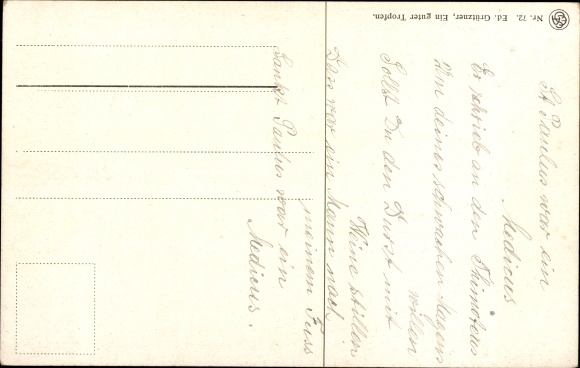 Nr. 72. Ed. Grützner, Ein guter Tropfen.
St Paulus war ein
Medicus
Er schrieb an den Thimoteus
Um deines schwachen Magens
willen
Sollst Du den Durst mit
Weine stillen
Das war ein Mann nach
meinem Fuss
Sankt Paulus war ein
Medicus.